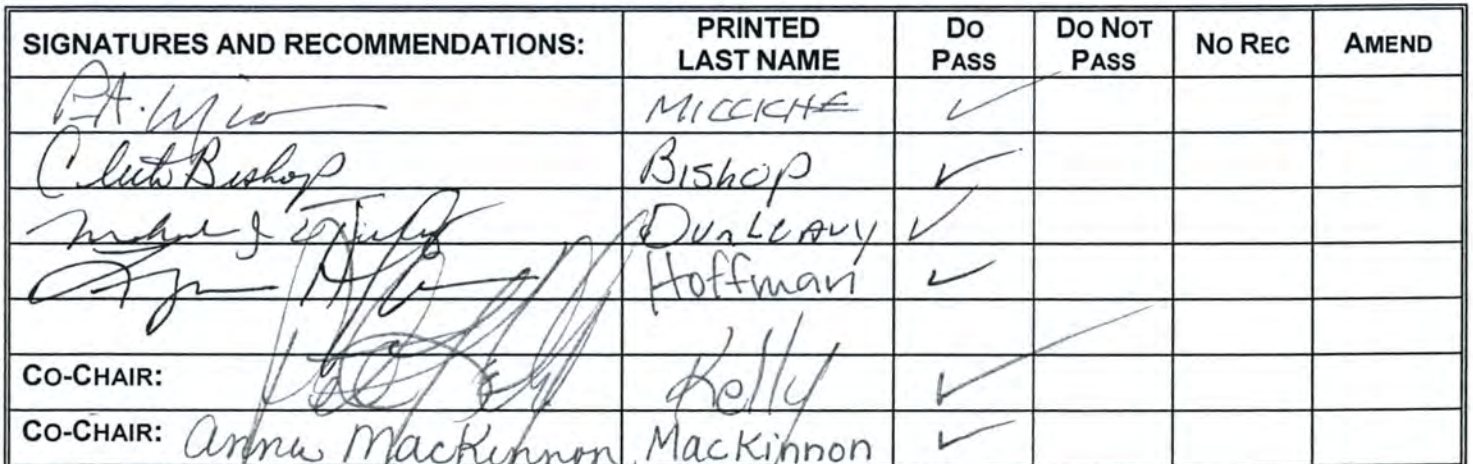 SIGNATURES AND RECOMMENDATIONS: PRINTED LAST NAME DO PASS DO NOT PASS NO REC AMEND
MICCICHE ✓
Click Bishop BISHOP ✓
DUNLEAVY ✓
Hoffman ✓
CO-CHAIR: Kelly ✓
CO-CHAIR: Anna MacKinnon MacKinnon ✓